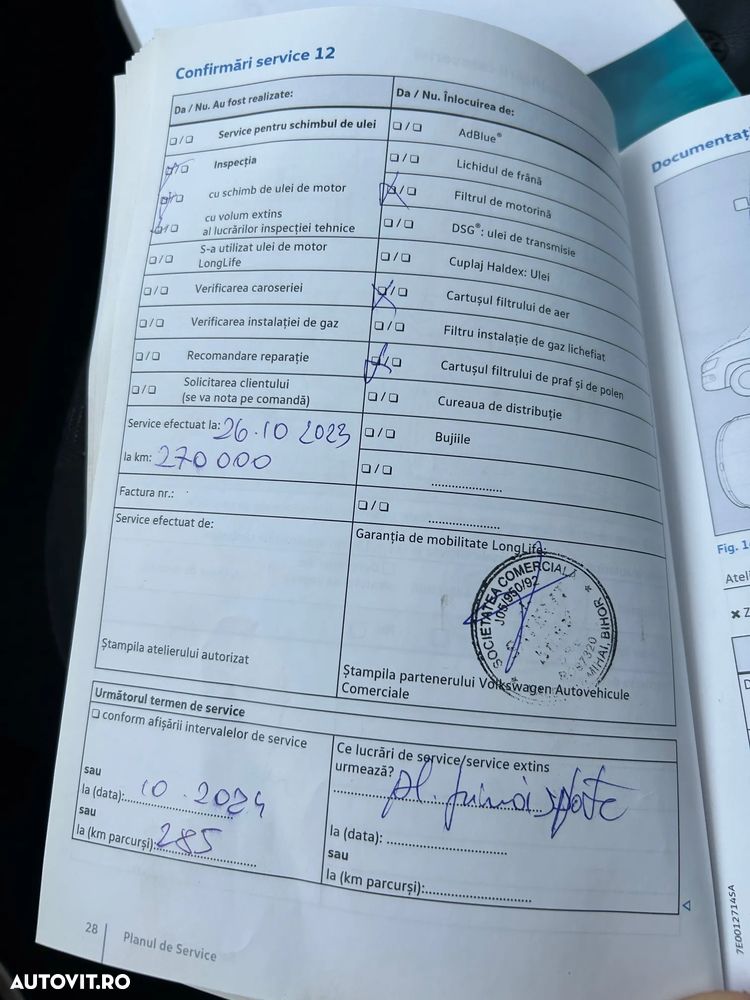 Confirmări service 12
Da / Nu. Au fost realizate:
❑ / ❑ Service pentru schimbul de ulei
❑ / ❑ Inspecția
❑ / ❑ cu schimb de ulei de motor
❑ / ❑ cu volum extins
al lucrărilor inspecției tehnice
❑ / ❑ S-a utilizat ulei de motor
LongLife
❑ / ❑ Verificarea caroseriei
❑ / ❑ Verificarea instalației de gaz
❑ / ❑ Recomandare reparație
❑ / ❑ Solicitarea clientului
(se va nota pe comandă)
Service efectuat la: 26.10 2023
la km: 270 000
Factura nr.:
Service efectuat de:
Ștampila atelierului autorizat
Da / Nu. Înlocuirea de:
❑ / ❑ AdBlue®
❑ / ❑ Lichidul de frână
❑ / ❑ Filtrul de motorină
❑ / ❑ DSG®: ulei de transmisie
❑ / ❑ Cuplaj Haldex: Ulei
❑ / ❑ Cartușul filtrului de aer
❑ / ❑ Filtru instalație de gaz lichefiat
❑ / ❑ Cartușul filtrului de praf și de polen
❑ / ❑ Cureaua de distribuție
❑ / ❑ Bujiile
❑ / ❑ ......................
❑ / ❑ ......................
Garanția de mobilitate LongLife:
SOCIETATEA COMERCIALĂ
J05/950/92
MIHAI, BIHOR
Ștampila partenerului Volkswagen Autovehicule
Comerciale
Următorul termen de service
❑ conform afișării intervalelor de service
sau
la (data): 10.2024
sau
la (km parcurși): 285
Ce lucrări de service/service extins
urmează?
la (data): ..............................
sau
la (km parcurși):..........................
28 Planul de Service
Documentaț
Fig. 1
Ateli
7E0012714SA
AUTOVIT.RO